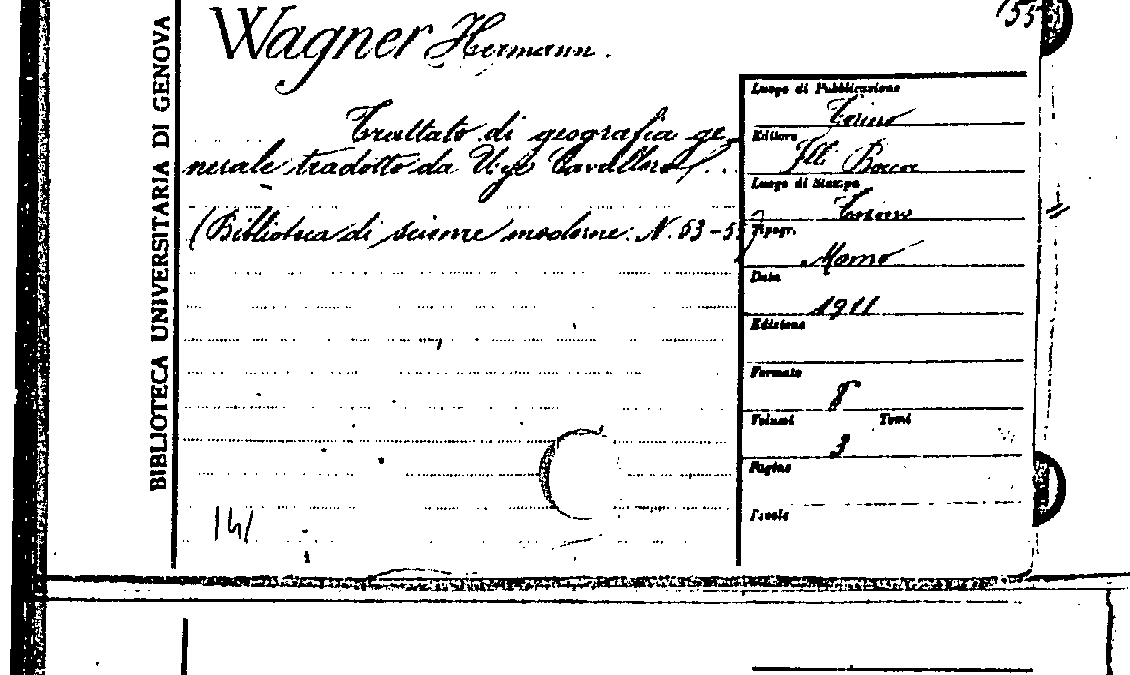 155
Wagner Hermann.
Trattato di geografia ge_
nerale tradotto da Ugo Cavallero /. .
(Biblioteca di scienze moderne: N. 53-55)
BIBLIOTECA UNIVERSITARIA DI GENOVA
Luogo di Pubblicazione
Torino
Editore
Flli Bocca
Luogo di Stampa
Torino
Tipogr.
Momo
Data
1911
Edizione
Formato
8
Volumi Tomi
3
Pagine
Tavole